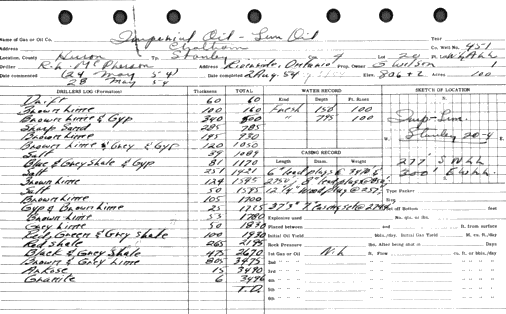 Name of Gas or Oil Co. Imperial Oil - Sun Oil Year
Address Chatham Co. Well No. 451
Location, County Huron Tp. Stanley Con. 4 Lot 20
Driller R.L. McPherson Address Riverside, Ontario Prop. Owner S Wilson
Date commenced (24 May 54) Date completed 2 Aug. 54 Elev. 806 + 2 Acres 100
28 May 54
DRILLERS LOG (Formation) Thickness TOTAL WATER RECORD SKETCH OF LOCATION
Kind Depth Ft. Rises N.
Drift 60 60 Fresh 150 100
Brown Lime 100 160 " 795 100
Brown Lime & Gyp 340 500 Imp-Sun
Sharp Sand 285 785 Stanley 20-4
Brown Lime 145 930 W. E.
Brown Lime & Grey & Gyp 120 1050
Salt 39 1089 CASING RECORD
Blue & Grey Shale & Gyp 81 1170 Length Diam. Weight 277' S
Salt 251 1421 300' E
Brown Lime 124 1545
Salt 50 1595 Type Packer
Brown Lime 105 1700 Size
Gyp & Brown Lime 25 1725 Off Bottom feet
Brown Lime 55 1780 Explosives used No. qts. or lbs.
Grey Lime 50 1830 Placed between and ft. from surface
Red, Green & Grey Shale 100 1930 Initial Oil Yield bbls./day. Initial Gas Yield M. cu. ft./day
Red Shale 265 2195 Rock Pressure lbs. After being shut in Days
Black & Grey Shale 475 2670 1st Gas or Oil Nil ft. Flow cu. ft. or bbls./day
Brown & Grey Lime 805 3475 2nd
Arkose 15 3490 3rd
Granite 6 3496 4th
T.D. 5th